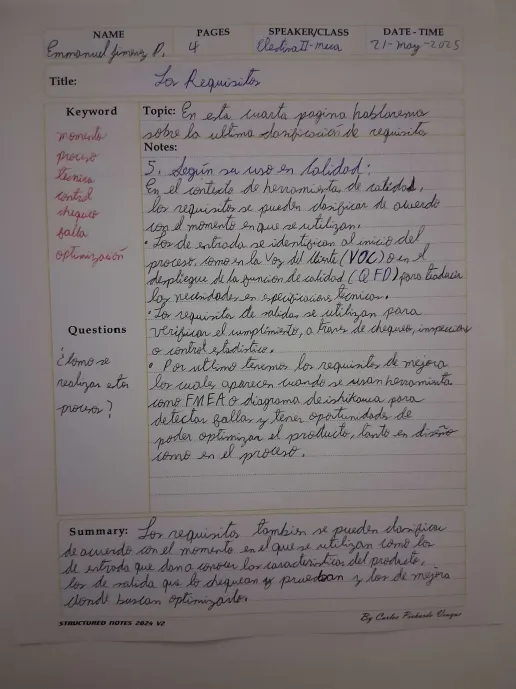 NAME PAGES SPEAKER/CLASS DATE - TIME
Emmanuel Jimenez P. 4 Electiva II - Meca 21-may-2025
Title: Los Requisitos
Keyword
momento
proceso
tecnica
control
chequeo
falla
optimización
Questions
¿Como se
realizan estos
procesos?
Topic: En esta cuarta pagina hablaremos
sobre la ultima clasificación de requisito
Notes:
5. Según su uso en Calidad:
En el contexto de herramienta de calidad,
los requisitos se pueden clasificar de acuerdo
con el momento en que se utilizan.
• Los de entrada se identifican al inicio del
proceso, como en la Voz del Cliente (VOC) o en el
despliegue de la función de calidad (QFD) para traducir
las necesidades en especificaciones técnicas.
• Los requisitos de salidas se utilizan para
verificar el cumplimiento, a través de chequeos, inspecciones
o control estadístico.
• Por ultimo tenemos los requisitos de mejora
los cuales aparecen cuando se usan herramienta
como FMEA o diagrama de ishikawa para
detectar fallas y tener oportunidades de
poder optimizar el producto, tanto en diseño
como en el proceso.
Summary: Los requisitos tambien se pueden clasificar
de acuerdo con el momento en el que se utilizan como los
de entrada que dan a conocer las caracteristicas del producto,
los de salida que lo chequean y prueban y los de mejora
donde buscan optimizarlos.
STRUCTURED NOTES 2024 V2 By Carlos Pichardo Vicioso